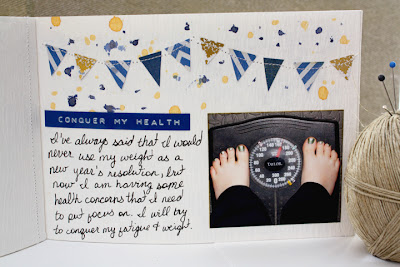 CONQUER MY HEALTH
I've always said that I would
never use my weight as a
new year's resolution, but
now I am having some
health concerns that I need
to put focus on. I will try
to conquer my fatigue & weight.
TAYLOR